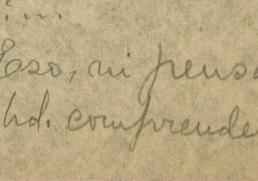 Eso, ni pensa
hd. comprende